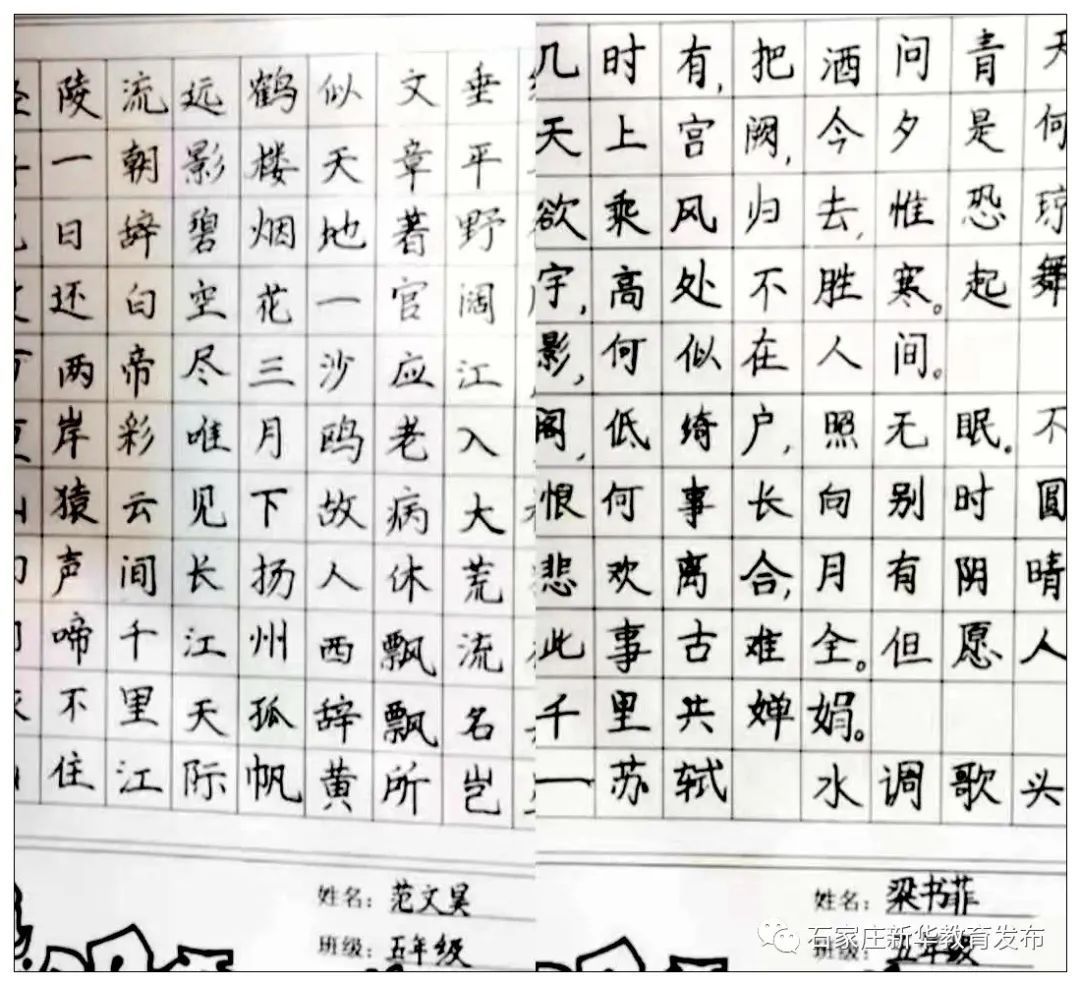 垂平野阔江入大荒流名岂
文章著官应老病休飘飘所
似天地一沙鸥故人西辞黄
鹤楼烟花三月下扬州孤帆
远影碧空尽唯见长江天际
流朝辞白帝彩云间千里江
陵一日还两岸猿声啼不住
姓名：范文昊
班级：五年级
几时有,把酒问青天
天上宫阙,今夕是何
欲乘风归去,惟恐琼
宇,高处不胜寒。起舞
影,何似在人间。
阁,低绮户,照无眠。不
恨何事长向别时圆
悲欢离合,月有阴晴
此事古难全。但愿人
千里共婵娟。
一苏轼 水调歌头
姓名：梁书菲
班级：五年级
石家庄新华教育发布